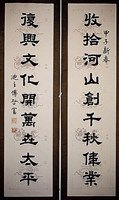 收拾河山創千秋偉業
甲午新春
復興文化開萬世太平